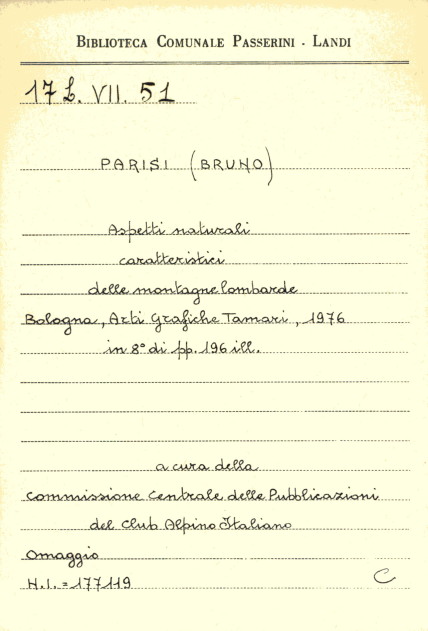 BIBLIOTECA COMUNALE PASSERINI - LANDI
17 L. VII. 51
PARISI (BRUNO)
Aspetti naturali
caratteristici
delle montagne lombarde
Bologna, Arti Grafiche Tamari, 1976
in 8° di pp. 196 ill.
a cura della
Commissione Centrale delle Pubblicazioni
del Club Alpino Italiano
Omaggio
N.I. = 177119
C